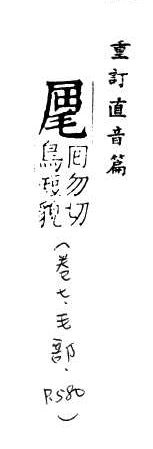 重訂直音篇
囘勿切
鳥短貌
(卷七、毛部、P.580)